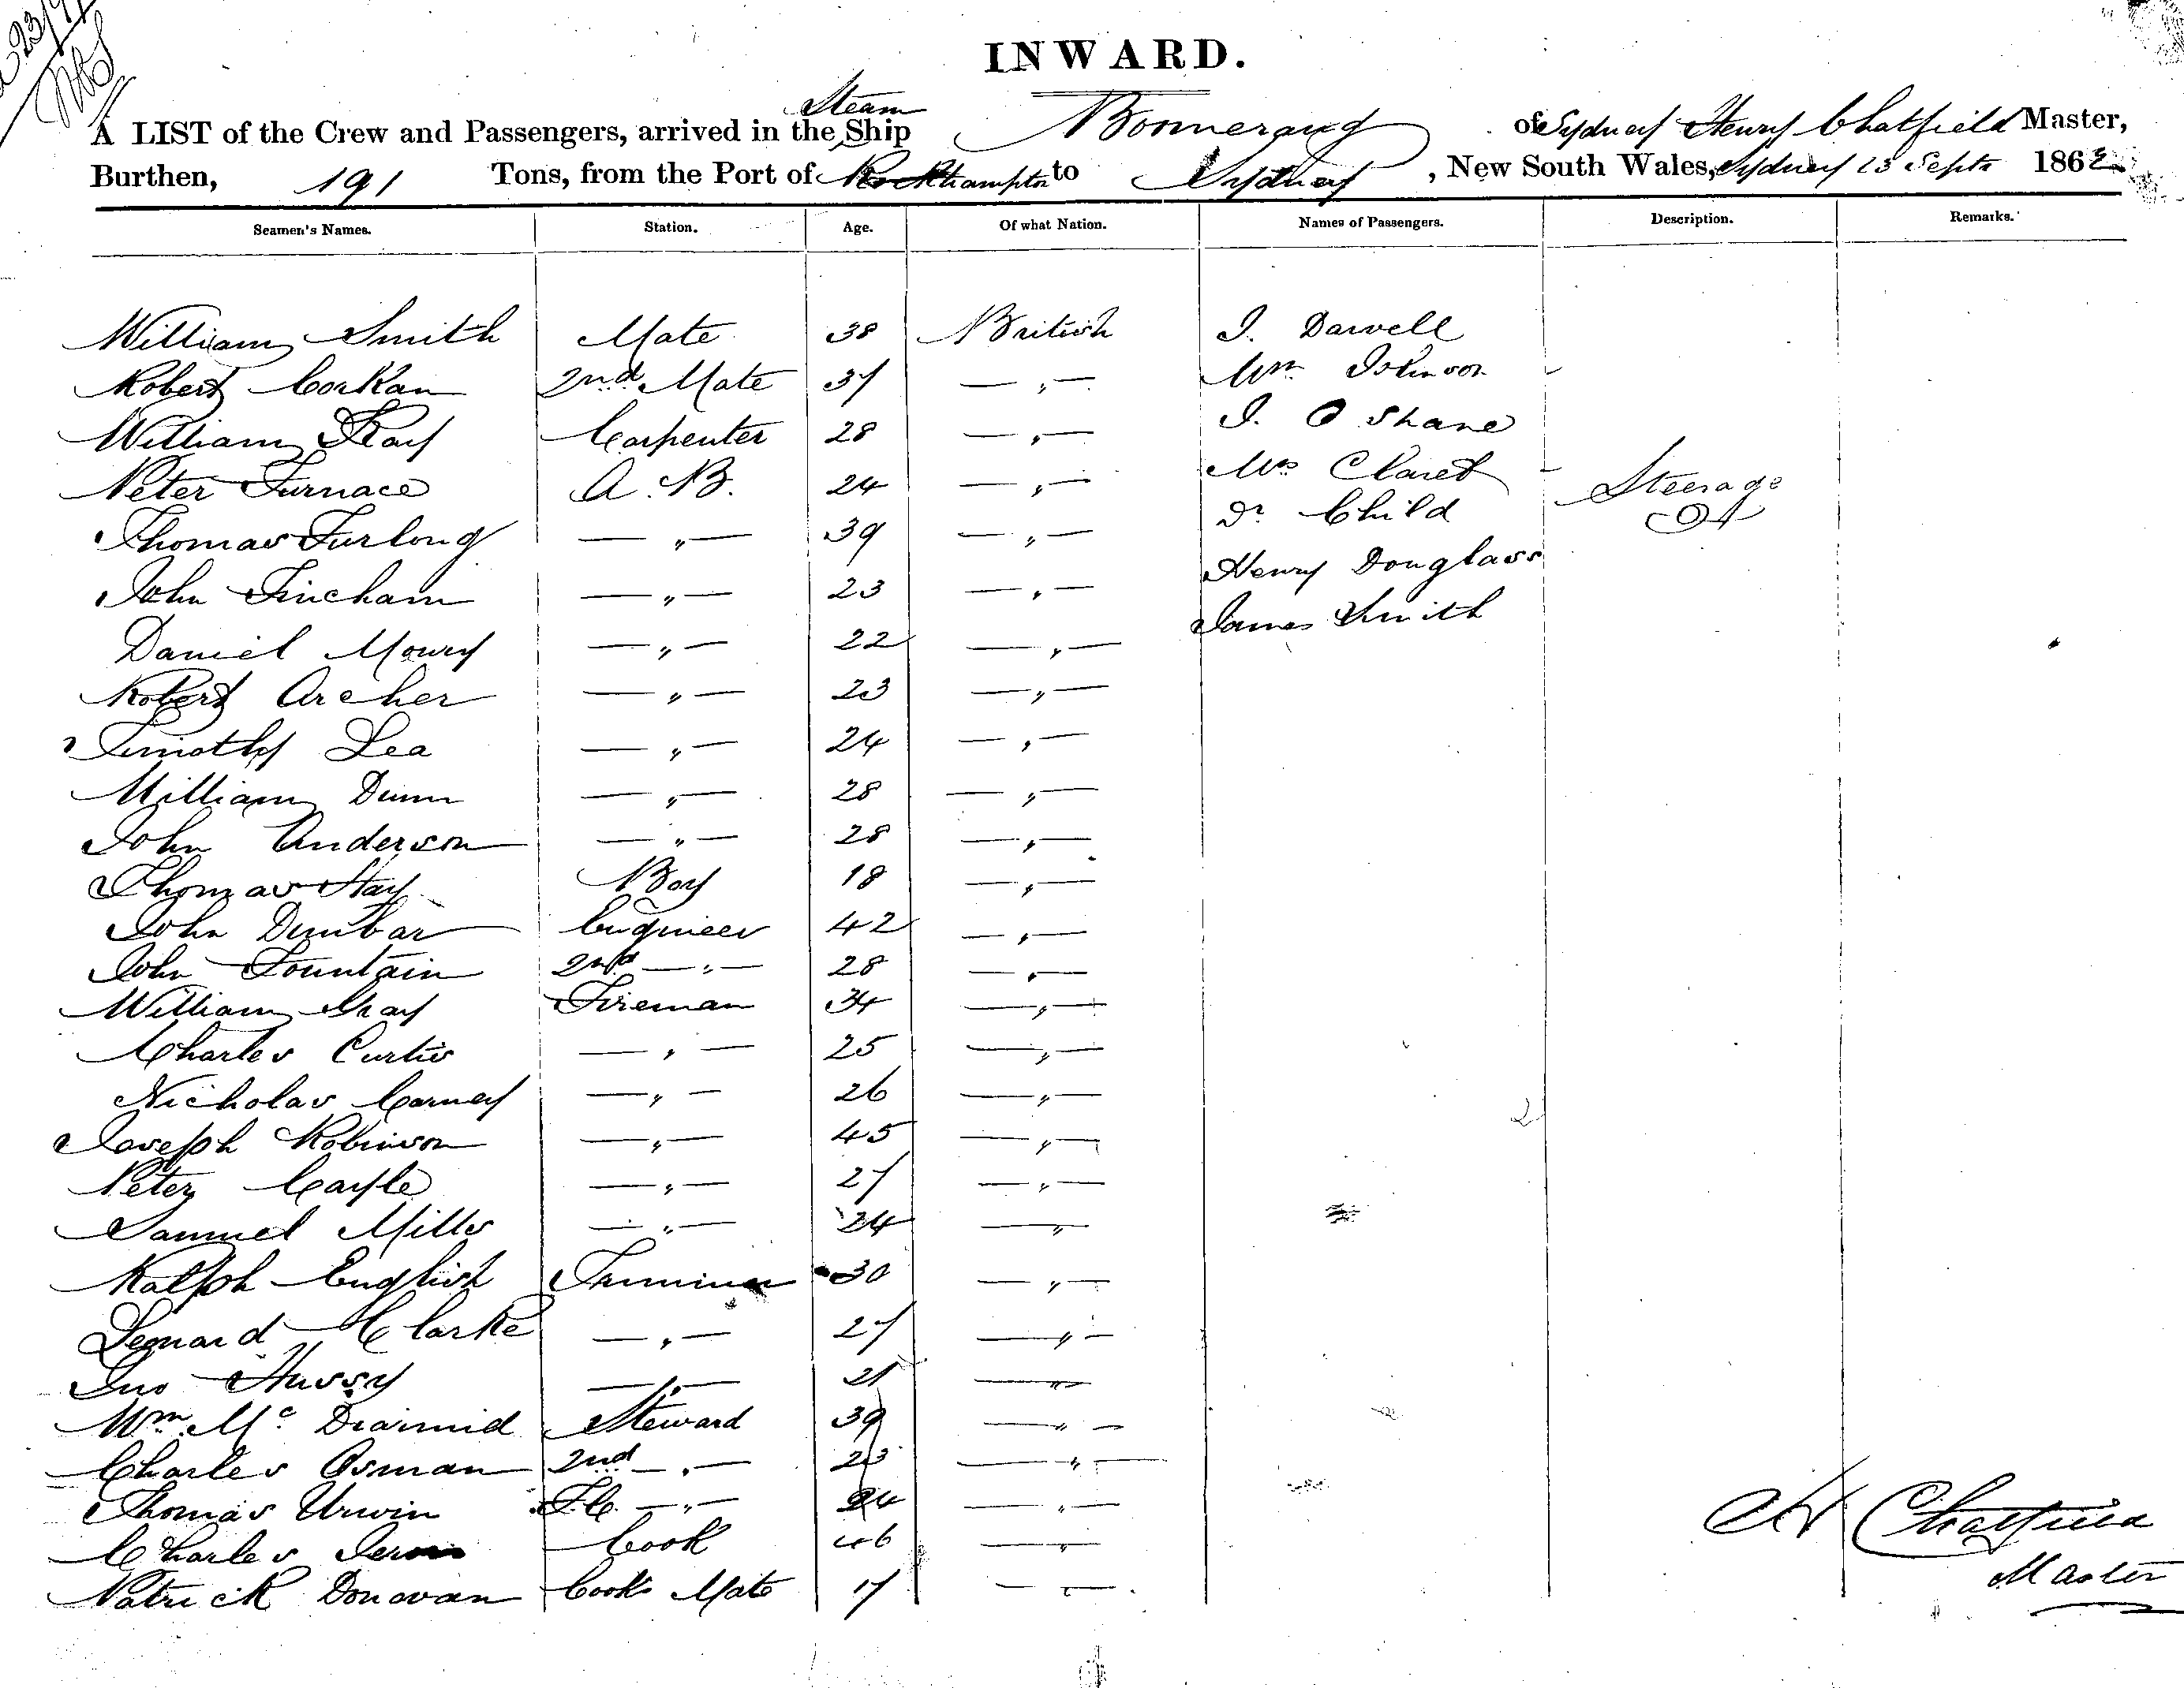 INWARD.
A LIST of the Crew and Passengers, arrived in the Steam Ship Boomerang of Sydney Henry Chatfield Master,
Burthen, 191 Tons, from the Port of Rockhampton to Sydney, New South Wales, Sydney 23 Septr 1862
Seamen's Names. Station. Age. Of what Nation. Names of Passengers. Description. Remarks.
William Smith Mate 38 British J. Darvell
Robert Corkan 2nd Mate 37 — " — Johnson
William Kay Carpenter 28 — " — J. O Shane
Peter Furnace A.B. 24 — " — Mrs Claret Steerage
Thomas Furlong — " — 39 — " — Do Child
John Fincham — " — 23 — " — Henry Douglass
Daniel Mowry — " — 22 — " — James Smith
Robert Archer — " — 23 — " —
Timothy Lea — " — 24 — " —
William Dunn — " — 28 — " —
John Anderson — " — 28 — " —
Thomas Hay Boy 18 — " —
John Dunbar Engineer 42 — " —
John Fountain 2nd — " — 28 — " —
William Gray Fireman 34 — " —
Charles Curtis — " — 25 — " —
Nicholas Carney — " — 26 — " —
Joseph Robinson — " — 45 — " —
Peter Carfle — " — 27 — " —
Samuel Mills — " — 24 — " —
Ralph English Trimmer 30 — " —
Leonard Clarke — " — 27 — " —
Jno Hussy — " — 21 — " —
Wm Mc Diarmid Steward 39 — " —
Charles Osman 2nd — " — 23 — " —
Thomas Urwin F.C. — " — 24 — " —
Charles Cook 46 — " —
Patrick Donovan Cooks Mate 17 — " —
H Chatfield
Master